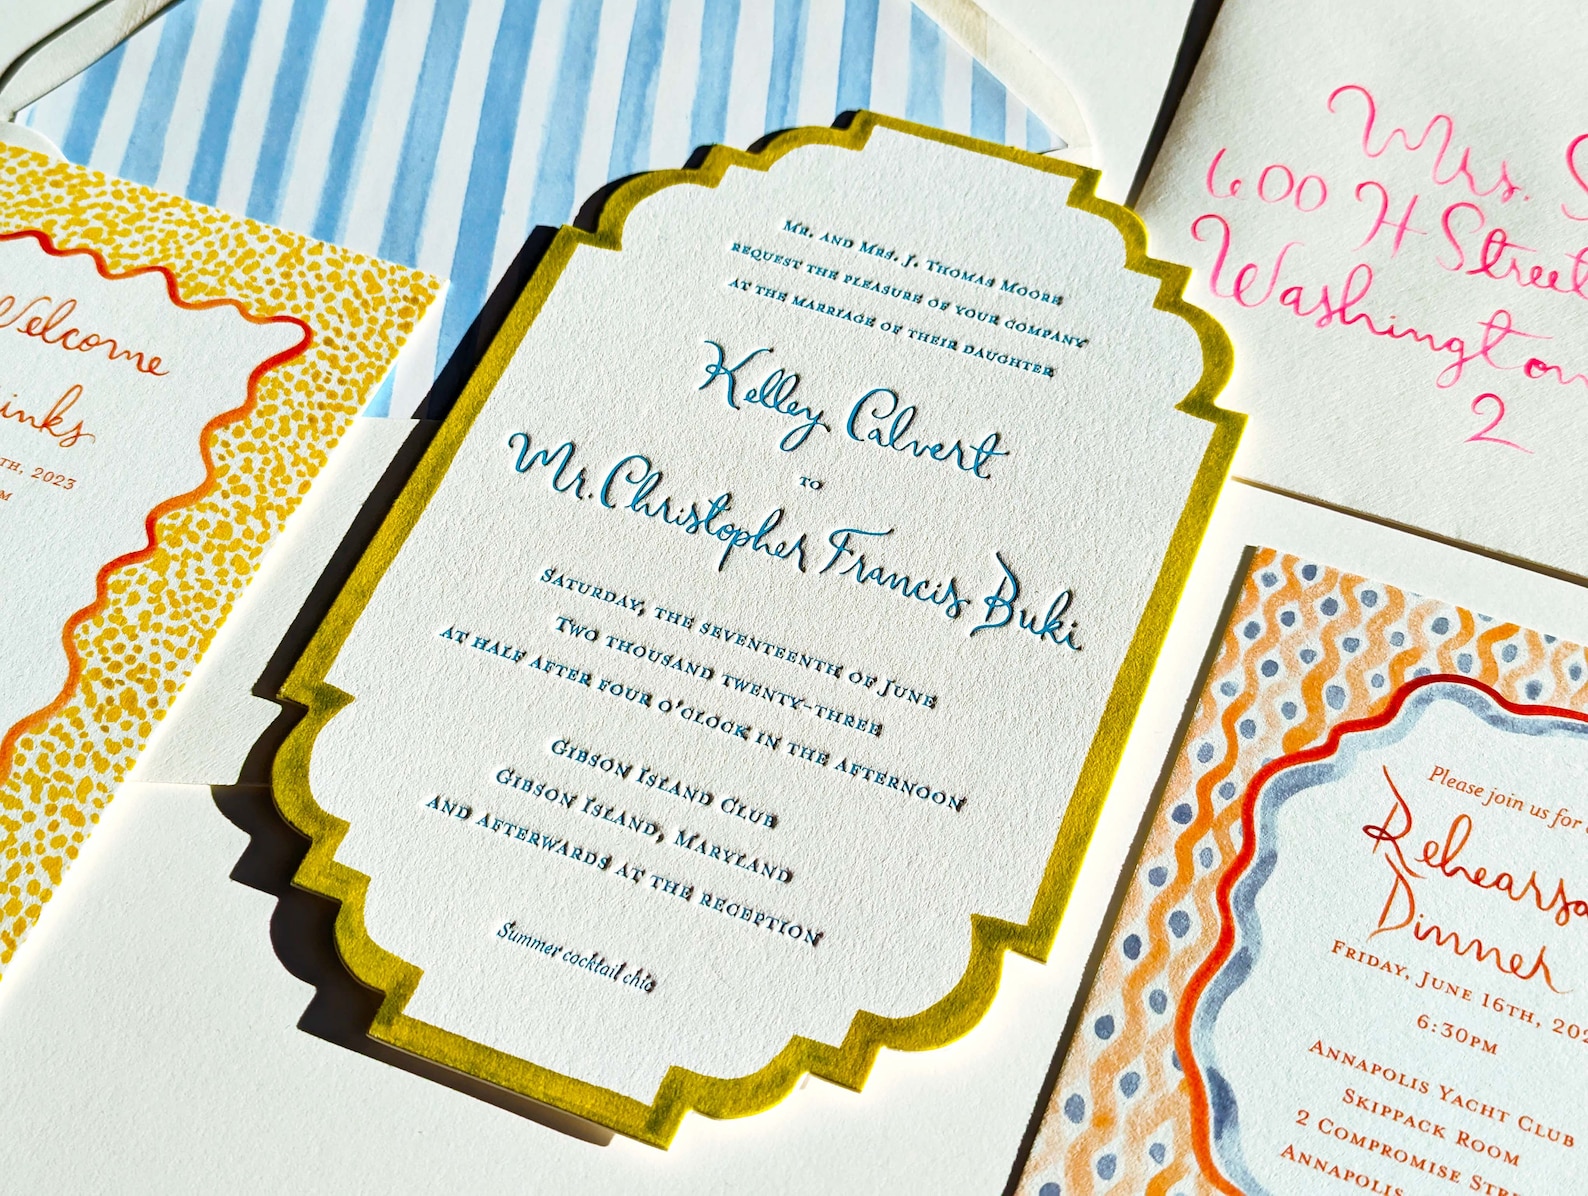 Mr. and Mrs. J. Thomas Moore
request the pleasure of your company
at the marriage of their daughter
Kelley Calvert
to
Mr. Christopher Francis Buki
Saturday, the seventeenth of June
Two thousand twenty-three
at half after four o'clock in the afternoon
Gibson Island Club
Gibson Island, Maryland
and afterwards at the reception
Summer cocktail chic
Welcome
inks
th, 2023
pm
Mrs. S
600 H Street
Washington
2
Please join us for
Rehearsa
Dinner
Friday, June 16th, 202
6:30pm
Annapolis Yacht Club
Skippack Room
2 Compromise Stre
Annapolis